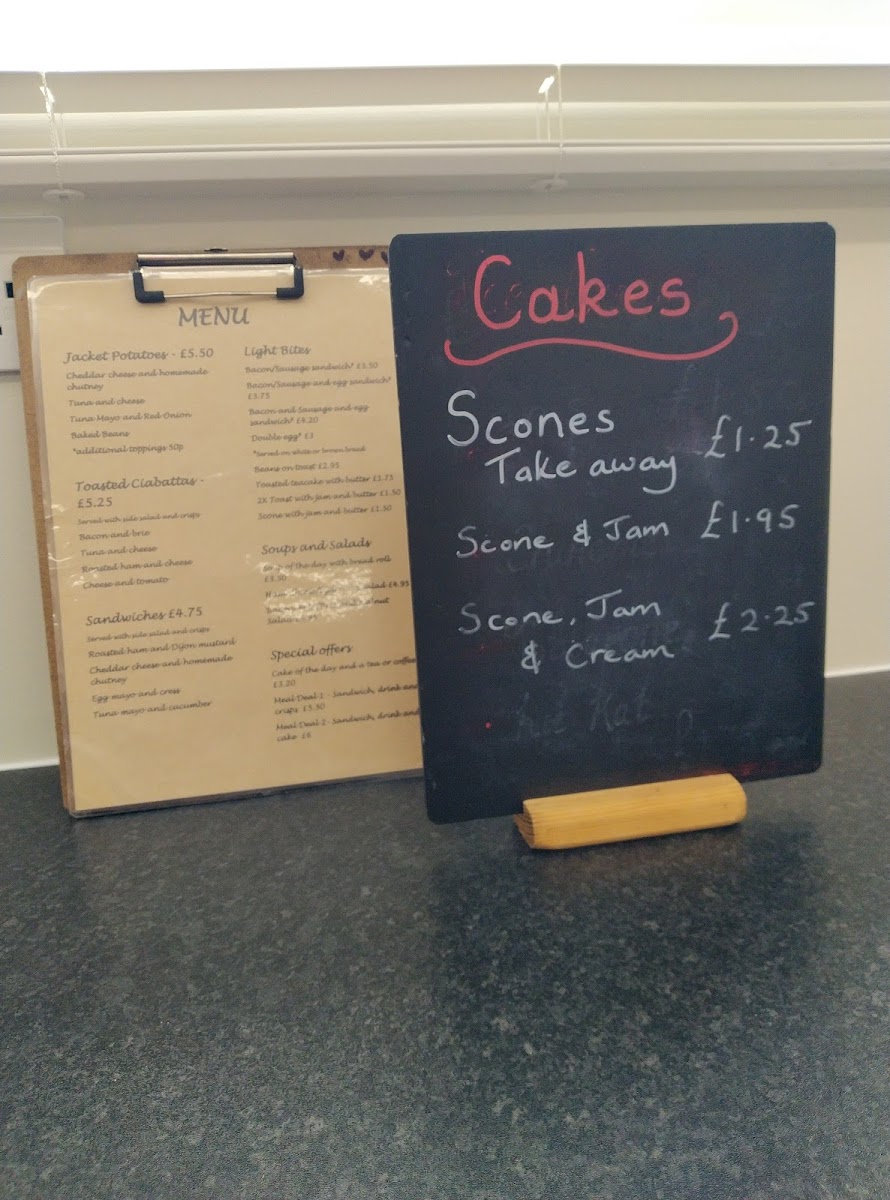 MENU
Jacket Potatoes - £5.50
Cheddar cheese and homemade
chutney
Tuna and cheese
Tuna Mayo and Red Onion
Baked Beans
*additional toppings 50p
Toasted Ciabattas -
£5.25
Served with side salad and crisps
Bacon and brie
Tuna and cheese
Roasted ham and cheese
Cheese and tomato
Sandwiches £4.75
Served with side salad and crisps
Roasted ham and Dijon mustard
Cheddar cheese and homemade
chutney
Egg mayo and cress
Tuna mayo and cucumber
Light Bites
Bacon/Sausage sandwich* £3.50
Bacon/Sausage and egg sandwich*
£3.75
Bacon and Sausage and egg
sandwich* £4.20
Double egg* £3
*Served on white or brown bread
Beans on toast £2.95
Toasted teacake with butter £1.75
2X Toast with jam and butter £1.50
Scone with jam and butter £1.50
Soups and Salads
Soup of the day with bread roll
£3.50
salad £4.95
Salad
Special offers
Cake of the day and a tea or coffee
£3.20
Meal Deal 1 - Sandwich, drink and
crisps £5.50
Meal Deal 2- Sandwich, drink and
cake £6
Cakes
Scones
Take away £1.25
Scone & Jam £1.95
Scone, Jam
& Cream £2.25